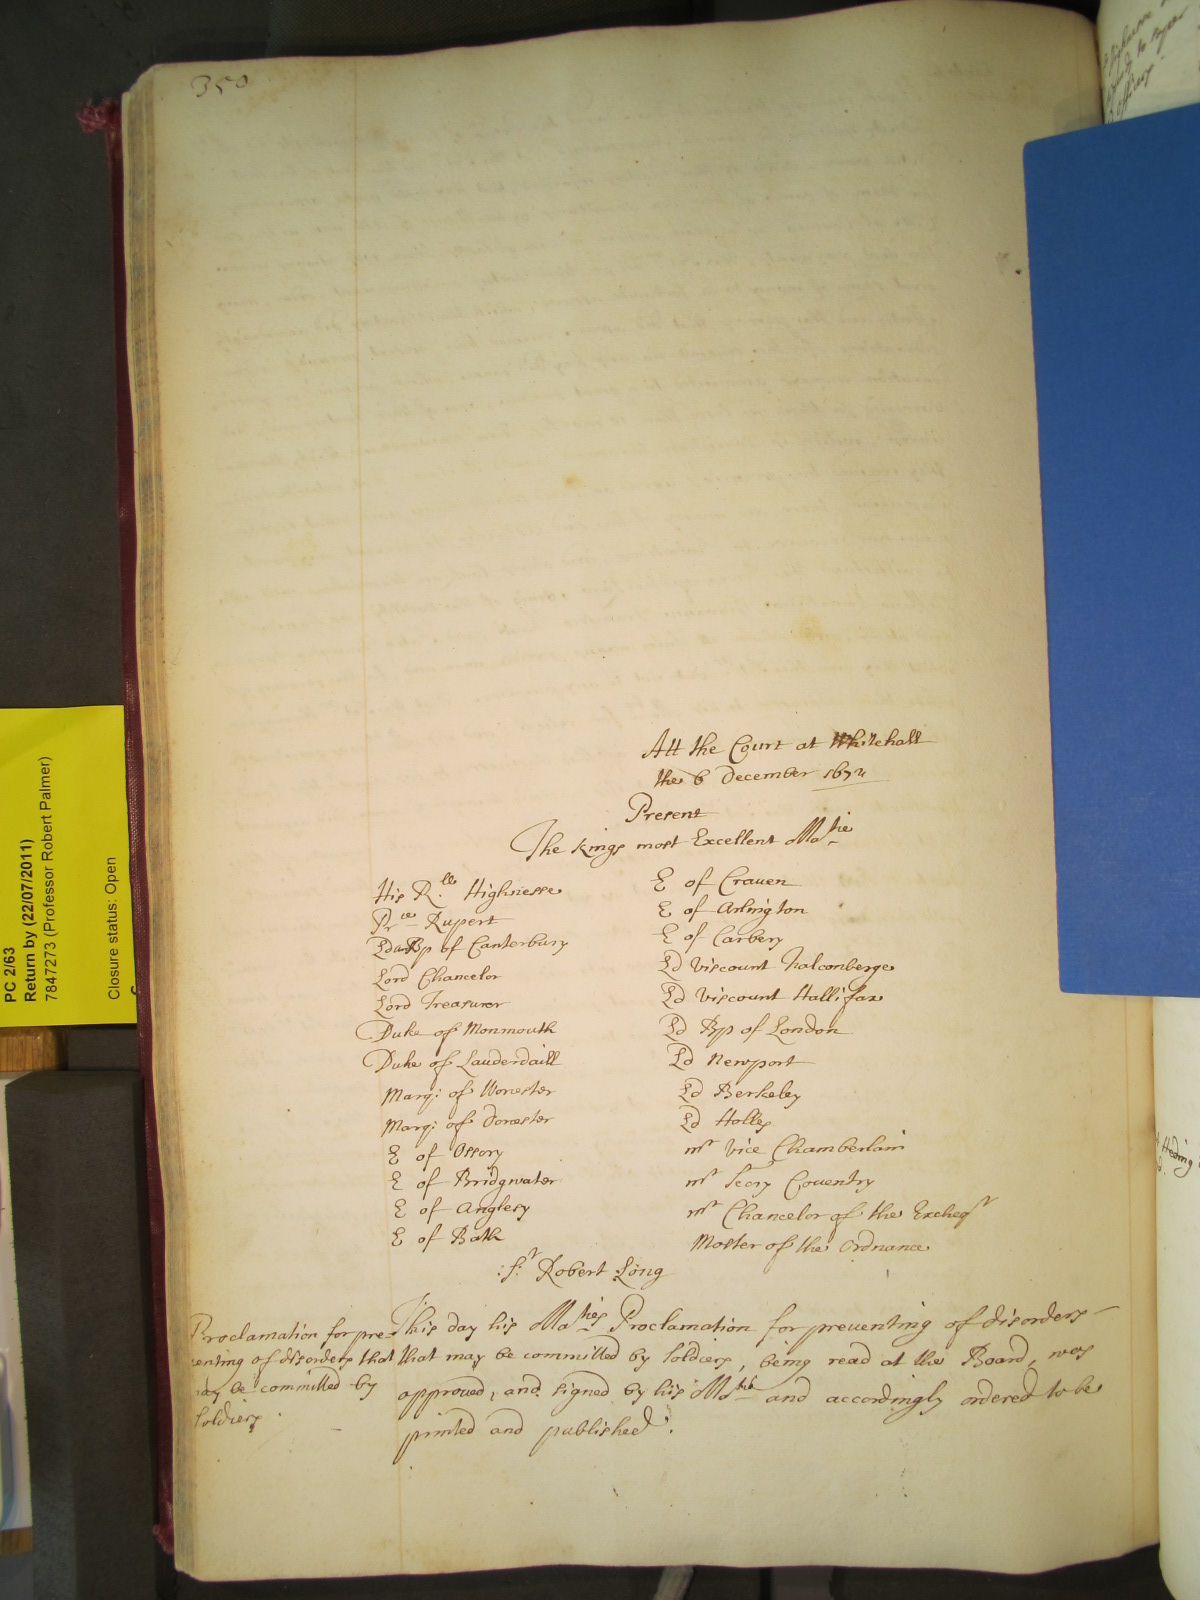 350
Att the Court at Whitehall
the 6 December 1672
Present
The kings most Excellent Matie
His R.ll Highnesse
Prce Rupert
Ld ArchBp of Canterbury
Lord Chancelor
Lord Treasurer
Duke of Monmouth
Duke of Lauderdaill
Marq: of Worester
Marq: of Dorester
E of Ossory
E of Bridgwater
E of Anglesy
E of Bath
E of Craven
E of Arlington
E of Carbery
Ld Viscount Falconberge
Ld Viscount Hallifax
Ld Bp of London
Ld Newport
Ld Berkeley
Ld Holles
mr Vice Chamberlain
mr Secry Coventry
mr Chancelor of the Excheqr
Master of the Ordnance
Sr Robert Long
Proclamation for pre-
venting of disorders that
may be committed by
Soldiers.
This day his Maties Proclamation for preventing of disorders
that may be committed by Soldiers, being read at the Board, was
approved, and signed by his Matie and accordingly ordered to be
printed and published.
PC 2/63
Return by (22/07/2011)
7847273 (Professor Robert Palmer)
Closure status: Open
officers
Heding